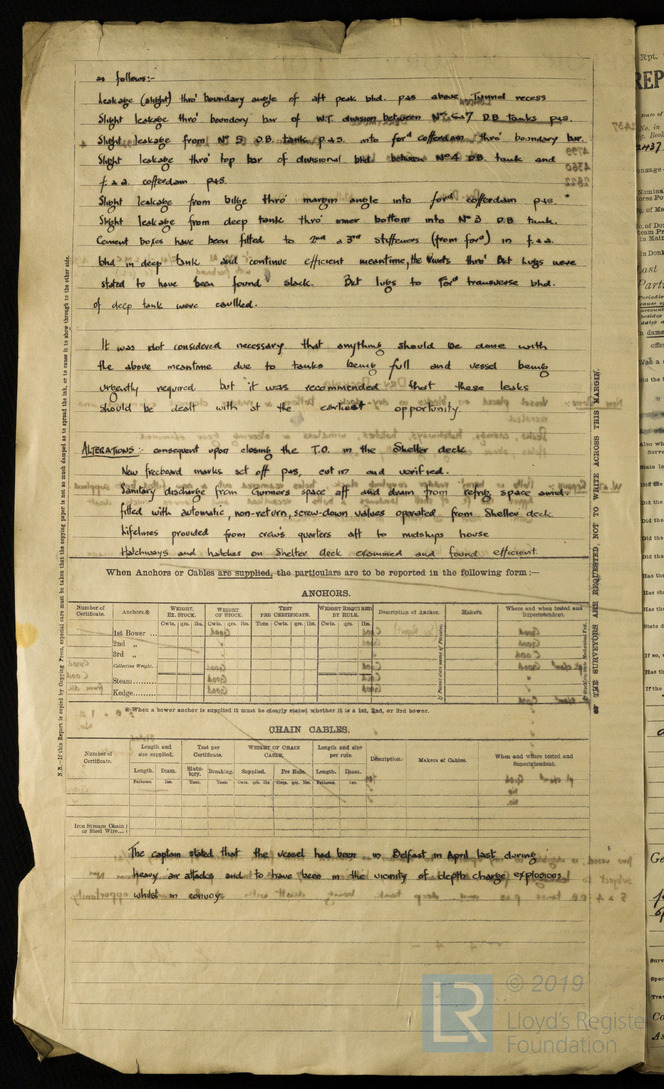 as follows:-
Leakage (slight) thro' boundary angle of aft peak bhd. p&s above Tunnel recess
Slight leakage thro' boundary bar of W.T. division between Nos 6 & 7 D.B tanks p&s.
Slight leakage from No 5 D.B. tank p&s. into for'd cofferdam thro' boundary bar.
Slight leakage thro' top bar of divisional bhd between No 4 D.B. tank and
f. & a. cofferdam p&s.
Slight leakage from bilge thro' margin angle into for'd cofferdam p&s.
Slight leakage from deep tank thro' inner bottom into No 3 D.B tank.
Cement boxes have been fitted to 2nd & 3rd stiffeners (from for'd) in f.&a.
bhd in deep tank and continue efficient meantime, the rivets thro' Bkt lugs were
stated to have been found slack. Bkt lugs to For'd transverse bhd.
of deep tank were caulked.
It was not considered necessary that anything should be done with
the above meantime due to tanks being full and vessel being
urgently required but it was recommended that these leaks
should be dealt with at the earliest opportunity.
ALTERATIONS:- consequent upon closing the T.O. in the Shelter deck
New freeboard marks set off p&s, cut in and verified.
Sanitary discharge from Gunners space aft and drain from refrig. space amid.
fitted with automatic, non-return, screw-down valves operated from Shelter deck
Lifelines provided from crew's quarters aft to midships house
Hatchways and hatches on Shelter deck examined and found efficient.
When Anchors or Cables are supplied, the particulars are to be reported in the following form:—
ANCHORS.
Number of Certificate. Anchors.※ WEIGHT. EX. STOCK. WEIGHT OF STOCK. TEST PER CERTIFICATE. WEIGHT REQUIRED BY RULE. Description of Anchor. Makers. Where and when tested and Superintendent.
Cwts. qrs. lbs. Cwts. qrs. lbs. Tons Cwts. qrs. lbs. Cwts. qrs. lbs.
1st Bower ...
2nd „
3rd „
Collective Weight.
Stream
Kedge
※When a bower anchor is supplied it must be clearly stated whether it is a 1st, 2nd, or 3rd bower.
CHAIN CABLES.
Number of Certificate. Length and size supplied. Test per Certificate. WEIGHT OF CHAIN CABLE. Length and size per rule. Description. Makers of Cables. When and where tested and Superintendent.
Length. Diam. Statutory. Breaking. Supplied. Per Rule. Length. Diam.
Fathoms. Ins. Tons. Tons. Cwts. qrs. lbs Cwts. qrs. lbs. Fathoms. Ins.
Iron Stream Chain or Steel Wire...
The captain stated that the vessel had been in Belfast in April last during
heavy air attacks and to have been in the vicinity of depth charge explosions
whilst in convoy.
N.B.—If this Report is copied by Copying Press, especial care must be taken that the copying paper is not so much damped as to spread the ink, or to cause it to show through to the other side.
THE SURVEYORS ARE REQUESTED, NOT TO WRITE ACROSS THIS MARGIN.
LR
© 2019
Lloyd's Register
Foundation